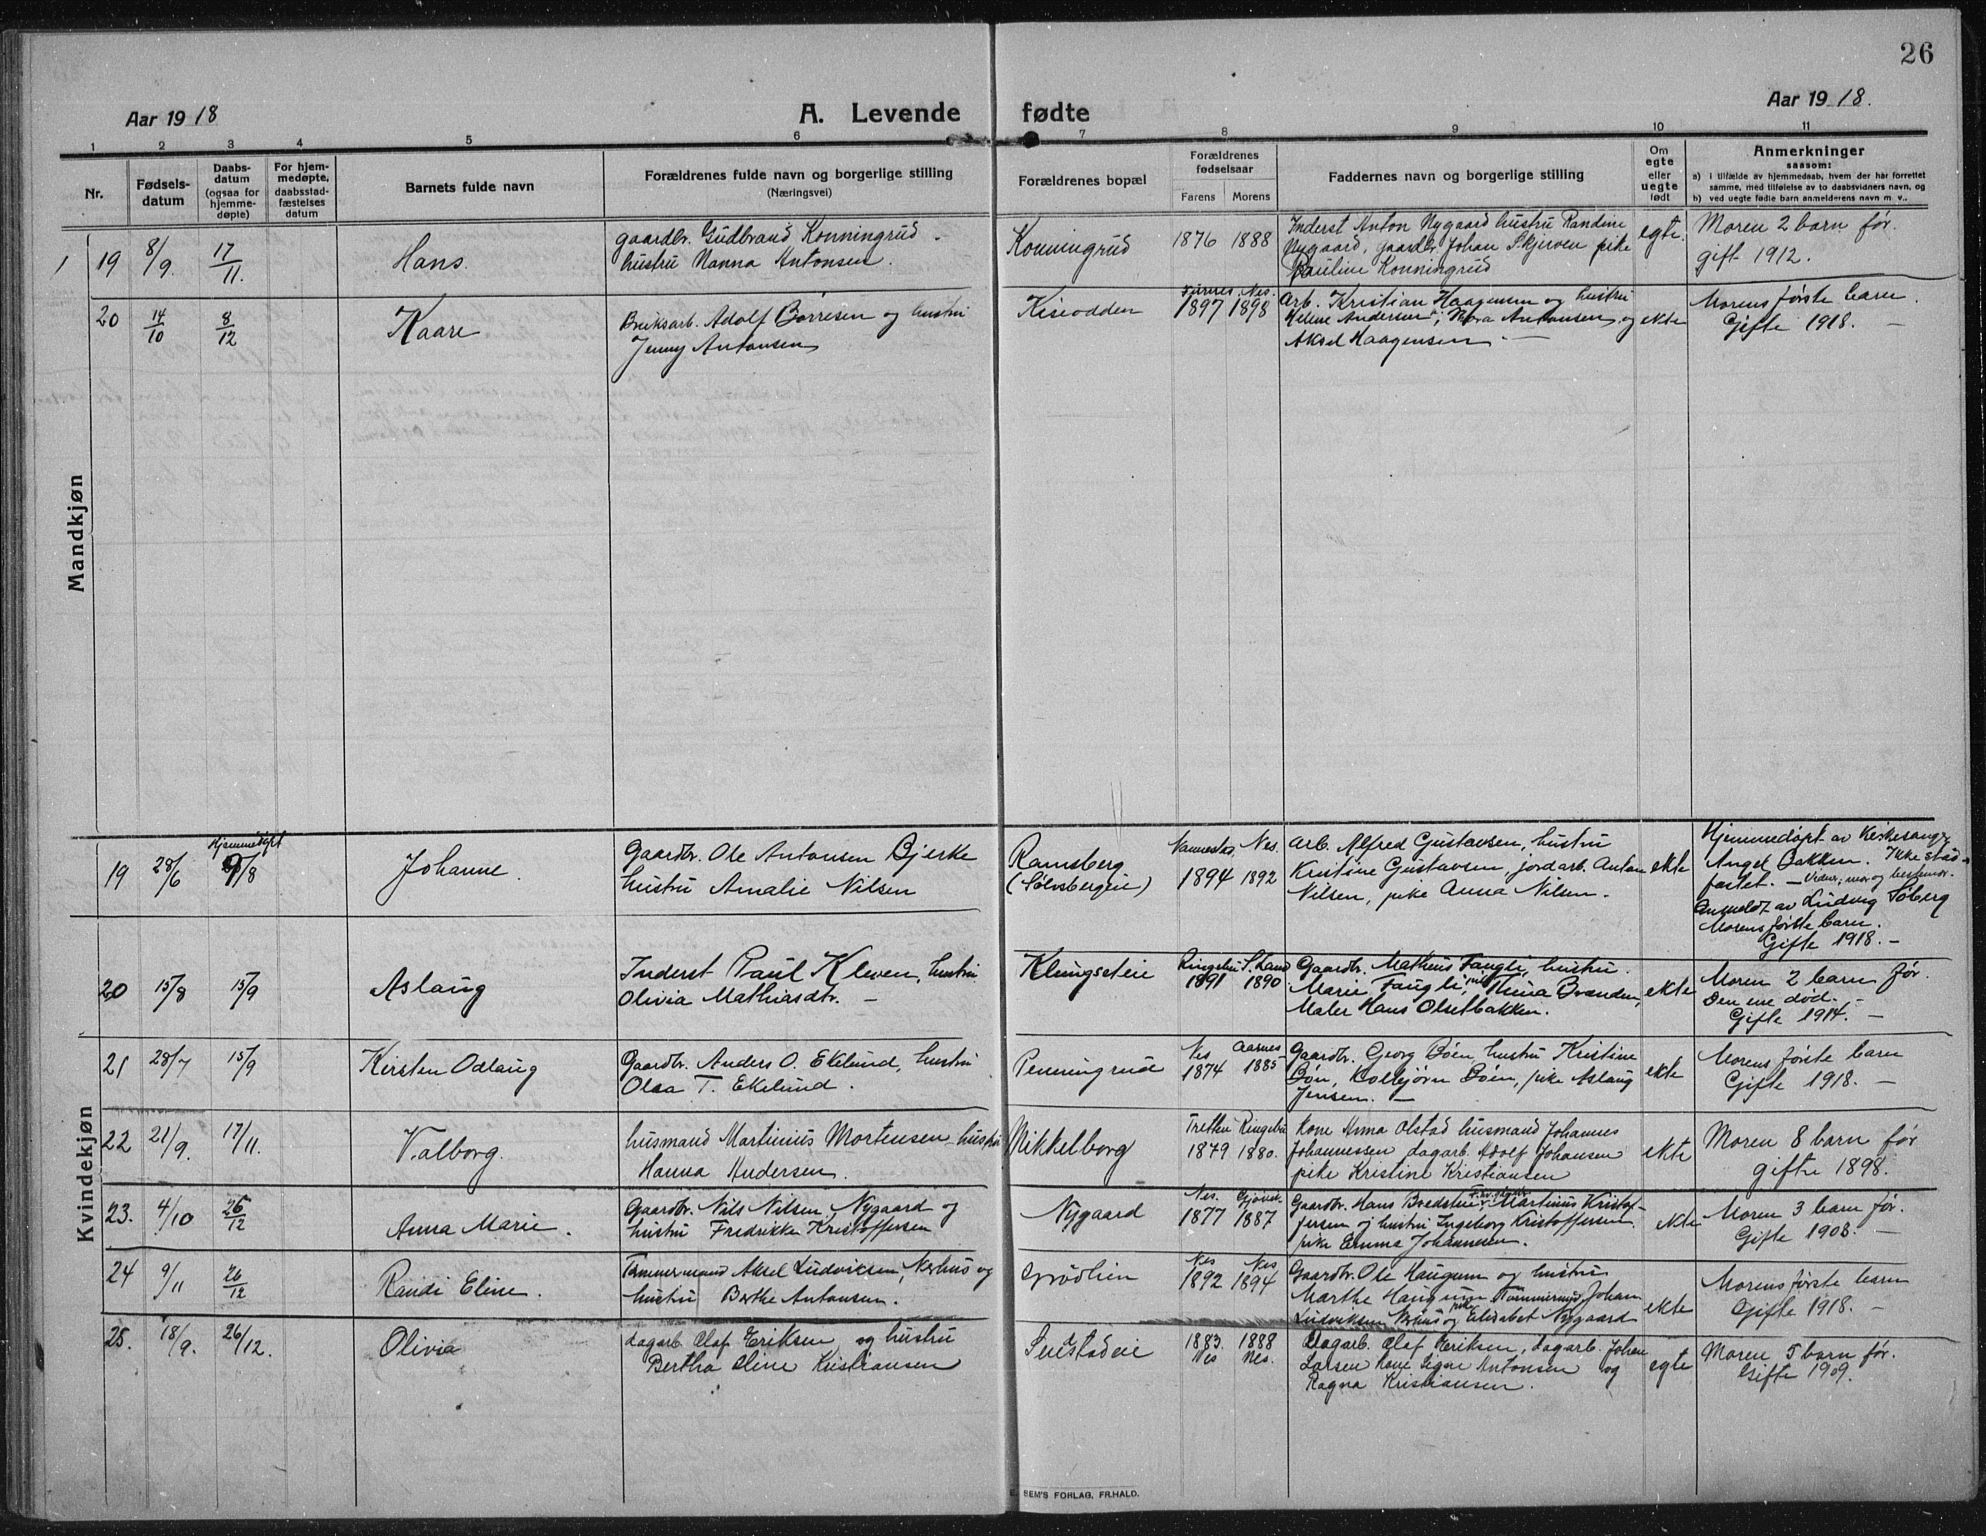 26
Aar 1918
A. Levende fødte
Aar 1918.
1 2 3 4 5 6 7 8 9 10 11
Nr.
Fødsels-
datum
Daabs-
datum
(ogsaa for
hjemme-
døpte)
For hjem-
medøpte,
daabsstad-
fæstelses
datum
Barnets fulde navn
Forældrenes fulde navn og borgerlige stilling
(Næringsvei)
Forældrenes bopæl
Forældrenes
fødselsaar
Farens Morens
Faddernes navn og borgerlige stilling
Om
egte
eller
uegte
født
Anmerkninger
saasom:
a) i tilfælde av hjemmedaab, hvem der har forrettet
samme, med tilføielse av to daabsvidners navn, og
b) ved uegte fødte barn anmelderens navn m. v..
Mandkjøn
19 8/9. 17/11. Hans.
gaardbr. Gudbrand Konningrud.
hustru Nanna Antonsen.
Konningrud
1876 1888
Inderst Anton Nygaard hustru Randine
Nygaard, gaardbr Johan Skjerven pike
Pauline Konningrud
egte.
Moren 2 barn før.
gift 1912.
20 14/10 8/12 Kaare
Bruksarb. Adolf Børresen og hustru
Jenny Antonsen
Kiseodden
Furnes. Nes.
1897 1898
Arb. Kristian Haagensen og hustru
Helene Andersen, Nora Antonsen og
Aksel Haagensen. —
ekte
Morens første barn.
Gifte 1918. —
Kvindekjøn
19 28/6 Hjemmedøpt 9/8 Johanne.
Gaardbr. Ole Antonsen Bjerke
hustru Amalie Nilsen
Ramsberg
(Sølvsbergeie)
Nannestad. Nes.
1894 1892
Arb. Alfred Gustavsen, hustru
Kristine Gustavsen, jordarb. Anton
Nilsen, pike Anna Nilsen.
ekte
Hjemmedøpt av Kirkesanger
Angel Bakken. Ikke stad-
festet. — Vidner; mor og bestemor.
Anmeldt av Ludvig Søberg
Morens første barn.
Gifte 1918. —
20 15/8 15/9 Aslaug
Inderst Paul Kleven, hustru
Olivia Mathiasdtr. —
Klungseteie
Ringebu S. Land
1891 1890
Gaardbr. Matheus Fangli, hustru
Marie Fangli, pike Thina Brænden,
Maler Hans Olsetbakken.
ekte
Moren 2 barn før.
Den ene død. —
Gifte 1914. —
21 28/7 15/9 Kirsten Odlaug
Gaardbr. Anders O. Ekelund, hustru
Olga T. Ekelund.
Penningrud
Nes Aasnes
1874 1885
Gaardbr. Georg Bøen, hustru Kristine
Bøn, Kolbjørn Bøen, pike Aslaug
Jensen. —
ekte
Morens første barn
Gifte 1918. —
22 21/9. 17/11. Valborg.
husmand Martinius Mortensen hustru
Hanna Andersen.
Mikkelborg
Tretten Ringebu
1879 1880.
Kone Anna Olstad husmand Johannes
Johannessen dagarb. Adolf Johansen
pike Kristine Kristiansen
ekte
Moren 8 barn før
gifte 1898.
23. 4/10 26/12 Anna Marie.
Gaardbr. Nils Nilsen Nygaard og
hustru Fredrikke Kristoffersen
Nygaard
Nes. Gjøvik.
1877 1887
Gaardbr. Hans Bredstien, Martinius Kristof-
fersen og hustru Ingeborg Kristoffersen
pike Emma Johannesen.
ekte
Moren 3 barn før.
Gifte 1908. —
24 9/11 26/12 Randi Eline.
Tømmermand Aksel Ludviksen, Nerhus og
hustru Berthe Antonsen.
Grødlien
Nes Nes
1892 1894
Gaardbr. Ole Haugum og hustru
Marthe Haugum Tømmermand Johan
Ludviksen Nerhus og pike Elisabet Nygaard
ekte
Morens første barn
Gifte 1918. —
25. 18/9. 26/12. Olivia
dagarb. Olaf Eriksen og hustru
Bertha Oline Kristiansen
Seilstadeie
1883. 1888
Nes Nes.
Dagarb. Olaf Eriksen, dagarb. Johan
Larsen kone Signe Antonsen og
Ragna Kristiansen.
egte
Moren 5 barn før.
Gifte 1909.
E. SEM'S FORLAG, FR.HALD.